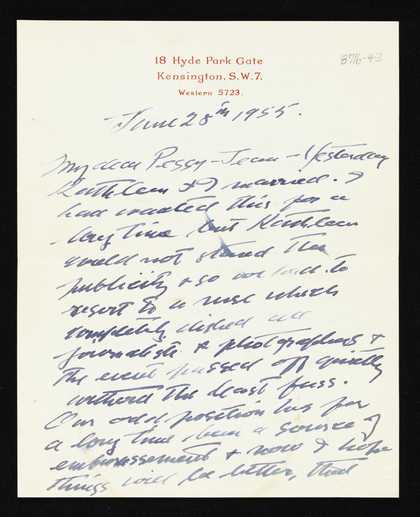 18 Hyde Park Gate
Kensington. S.W.7.
Western 5723.
8716-43
June 28th 1955.
My dear Peggy-Jean - Yesterday
Kathleen & I married. I
had wanted this for a
long time but Kathleen
would not stand the
publicity & so we had to
resort to a ruse which
completely dished all
journalists & photographers &
the event passed off quietly
without the least fuss.
Our odd position has for
a long time been a source of
embarrassment & now I hope
things will be better, that